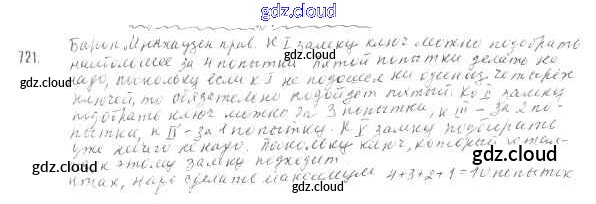 gdz.cloud
721. Барон Мюнхаузен прав. К I замку ключ можно подобрать
наибольшее за 4 попытки, пятой попытки делать не
надо, поскольку если к I не подошел ни один из четырех
ключей, то обязательно подойдет пятый. Ко II замку
подобрать ключ можно за 3 попытки, к III – за 2 по-
пытки, к IV – за 1 попытку. К V замку подбирать
уже ничего не надо. Поскольку ключ, который остал-
ся к этому замку подходит.
Итак, надо сделать максимум 4+3+2+1=10 попыток
gdz.cloud
gdz.cloud
gdz.cloud
gdz.cloud
gdz.cloud
gdz.cloud
gdz.cloud